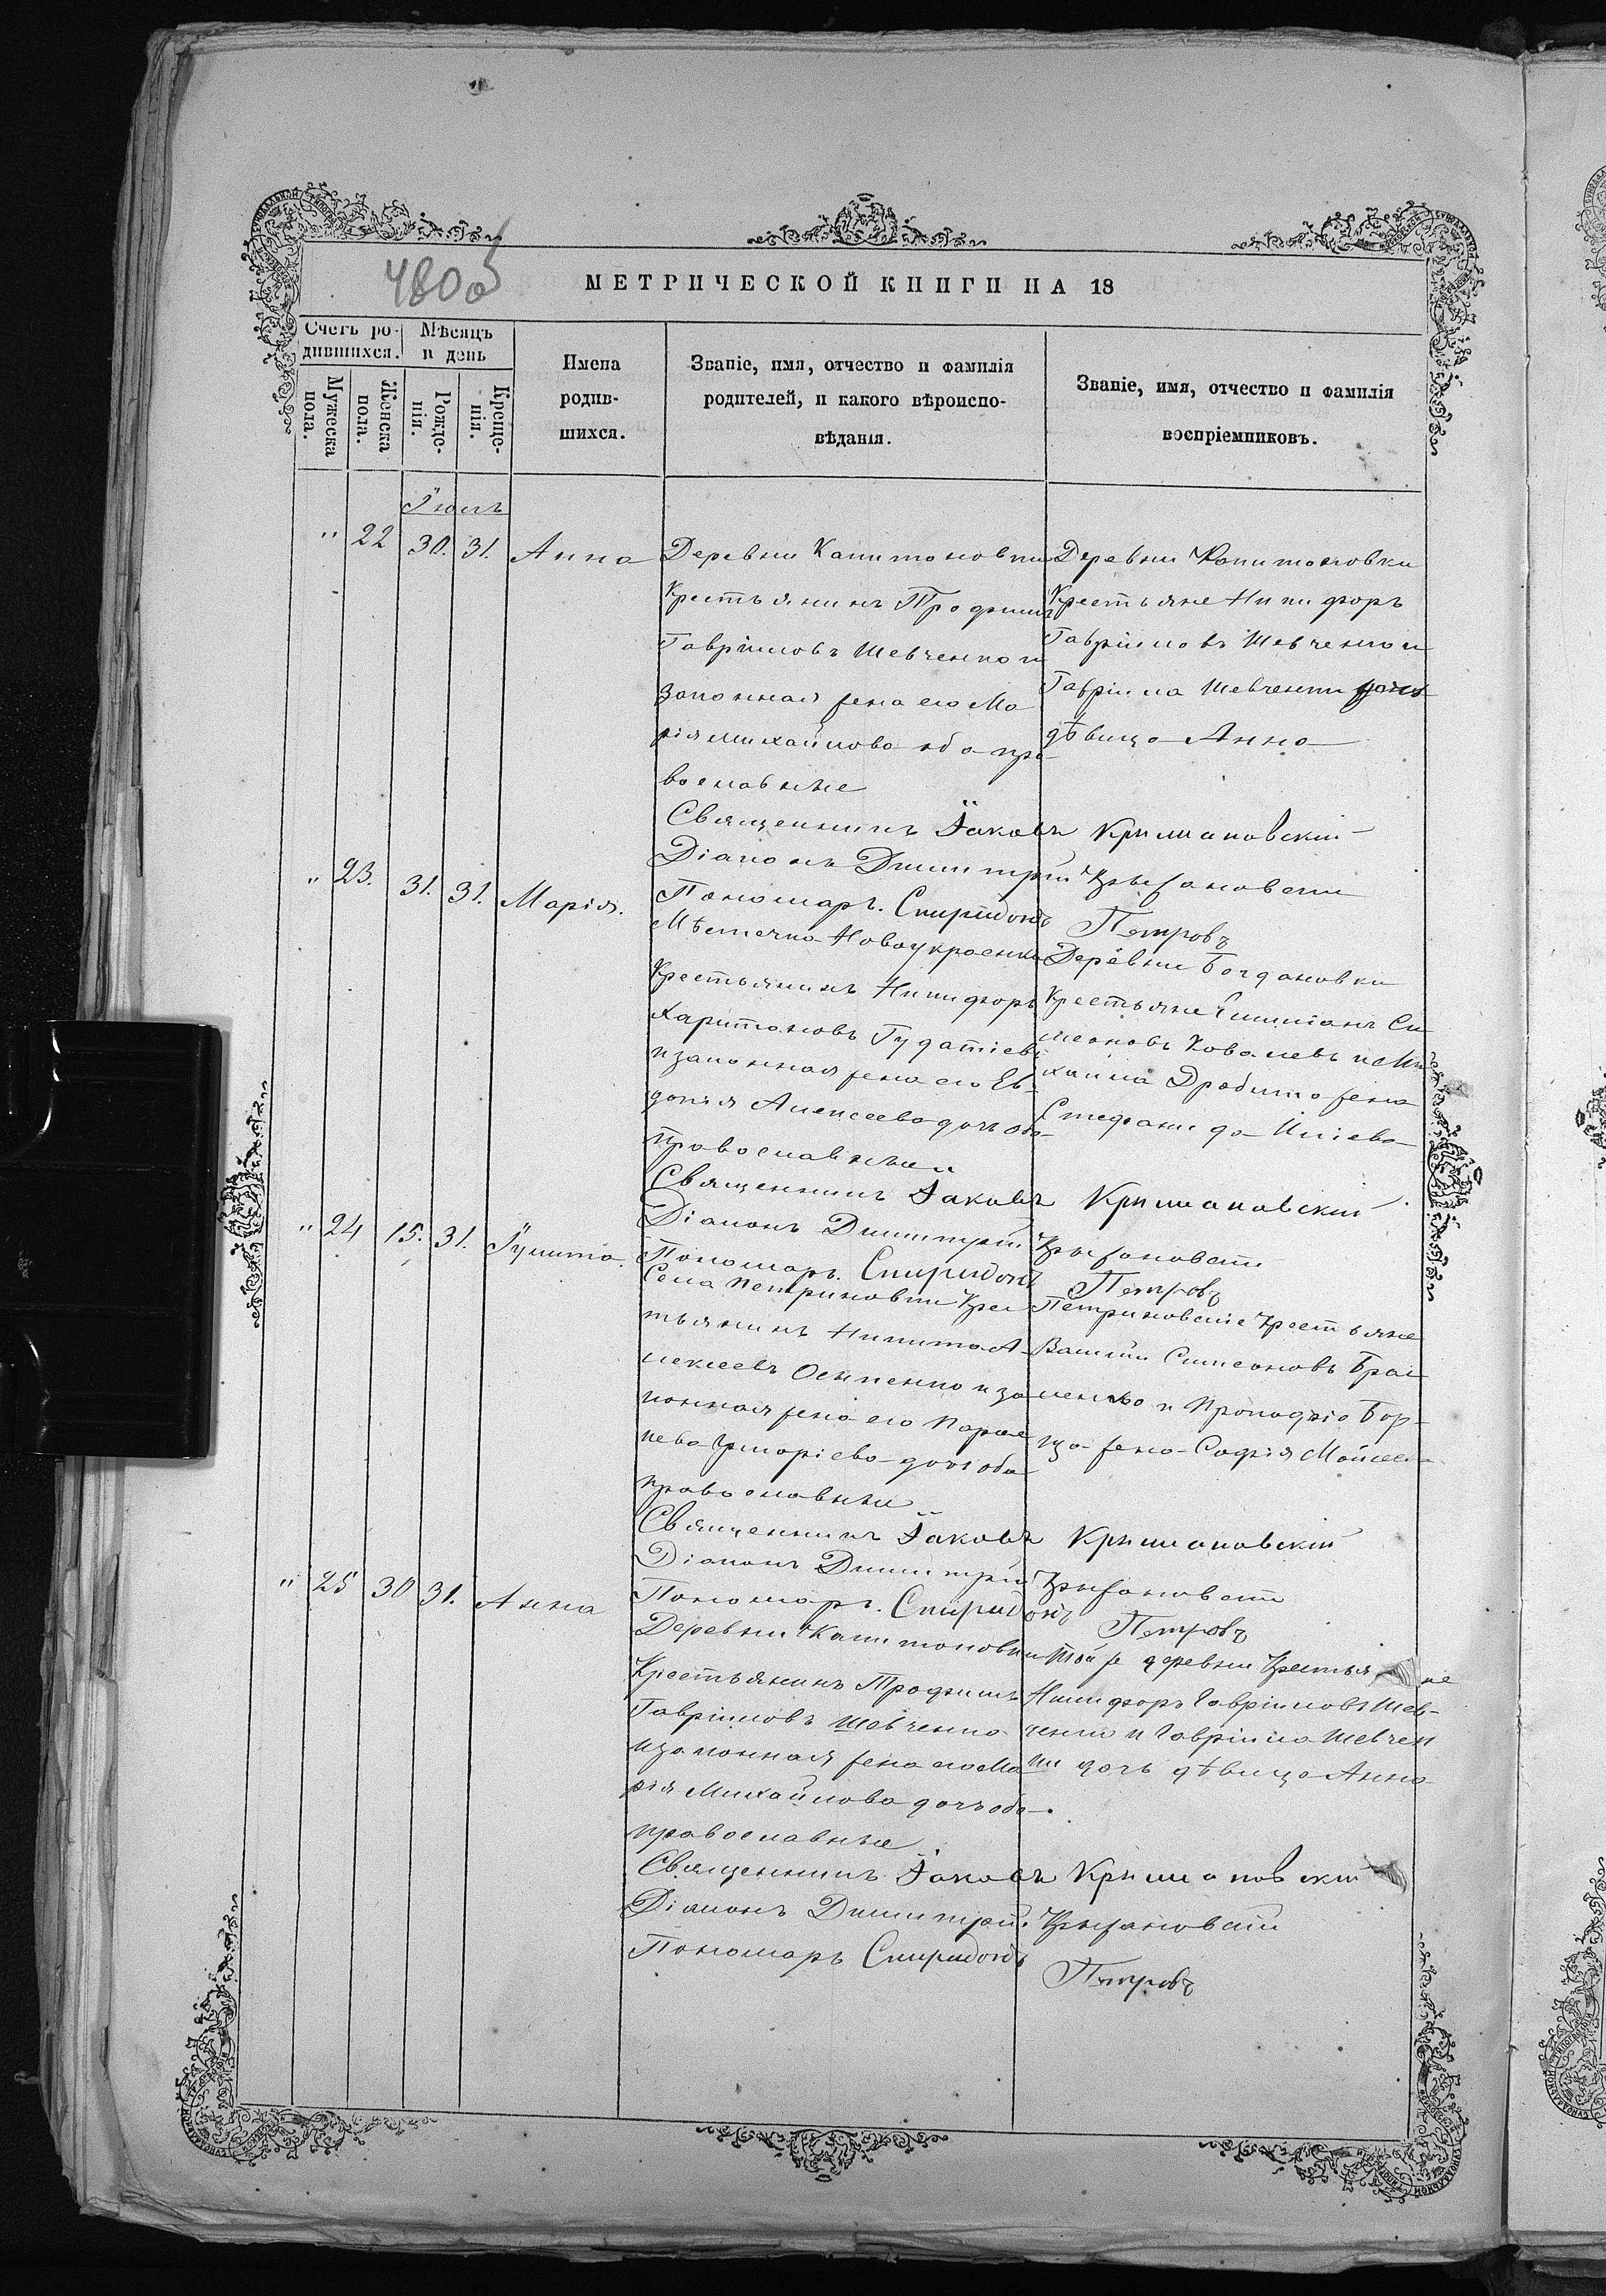 480об
МЕТРИЧЕСКОЙ КНИГИ НА 18
Счетъ родившихся.
Мѣсяцъ и день
Мужеска пола.
Женска пола.
Рожденія.
Крещенія.
Имена родившихся.
Званіе, имя, отчество и фамилія родителей, и какого вѣроисповѣданія.
Званіе, имя, отчество и фамилія воспріемниковъ.
Іюль
" 22 30. 31. Анна
Деревни Капитоновки
Крестьянинъ Трофимъ
Гавріиловъ Шевченко и
законная жена его Ма
рія Михайлова оба пра
вославные
Деревни Капитоновки
Крестьяне Никифоръ
Гавріиловъ Шевченко и
Гавріила Шевченки дочь
дѣвица Анна
Священникъ Іаковъ Крыжановскій
Діаконъ Димитрій Крыжановскій
Пономарь. Спиридонъ Петровъ
" 23. 31. 31. Марія.
Мѣстечка Новоукраинка
Крестьянинъ Никифоръ
Харитоновъ
и законная жена его Ев-
докія Алексеева дочь оба
православные
Деревни Богдановки
Крестьяне Емиліанъ Си
меоновъ Ковалевъ и Ми
хаила жена
Стефанида Иліева
Священникъ Іаковъ Крыжановскій
Діаконъ Димитрій Крыжановскій
Пономарь. Спиридонъ Петровъ
" 24 15. 31. Іулитта.
Села Петриковки Крес
тьянинъ Никита А-
лексеевъ Осипенко и за
конная жена его Параске
ва Григоріева дочь оба
православные
Петриковскіе Крестьяне
Василій Симеоновъ
и
жена София Моисеева
Священникъ Іаковъ Крыжановскій
Діаконъ Димитрій Крыжановскій
Пономарь. Спиридонъ Петровъ
" 25 30 31. Анна
Деревни Капитоновки
Крестьянинъ Трофимъ
Гавріиловъ Шевченко
и законная жена его Ма
рія Михайлова дочь оба
православные
Той же деревни Крестьяне
Никифоръ Гавріиловъ Шев-
ченко и Гавріила Шевчен
ки дочь дѣвица Анна
Священникъ Іаковъ Крыжановскій
Діаконъ Димитрій Крыжановскій
Пономарь Спиридонъ Петровъ